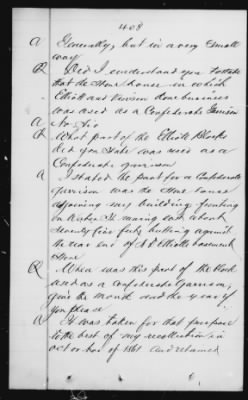 408
A Generally, but in a very small
way
Q Did I understand you to state
that the Stone house in which
Elliott and Vinson done business
was used as a Confederate Garrison
A No Sir
Q What part of the Elliott Block
did you State was used as a
Confederate garrison
A I stated the part for a Confederate
garrison was the Stone house
adjoining my building fronting
on Water St. runing east about
Seventy five feet, butting against
the rear end of A. P. Elliotts basement
Store
Q When was this part of the block
used as a Confederate garrison,
give the month and the year if
you please
A It was taken for that purpose
to the best of my recollection in
october of 1861 and retained